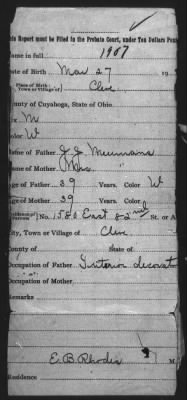 his Report must be Filed in the Probate Court, under Ten Dollars Pena
1907
Name in full
Date of Birth Mar 27 19
Place of Birth
Town or Village of Cleve
County of Cuyahoga, State of Ohio.
Sex M
Color W
Name of Father J. J.
Name of Mother Mrs "
Age of Father 39 Years. Color W
Age of Mother 39 Years. Color
Residence of Parents No. 1580 East 82nd St. or A
City, Town or Village of Cleve.
County of State of
Occupation of Father Interior decorat
Occupation of Mother
Remarks
E. B. Rhodes M
Residence